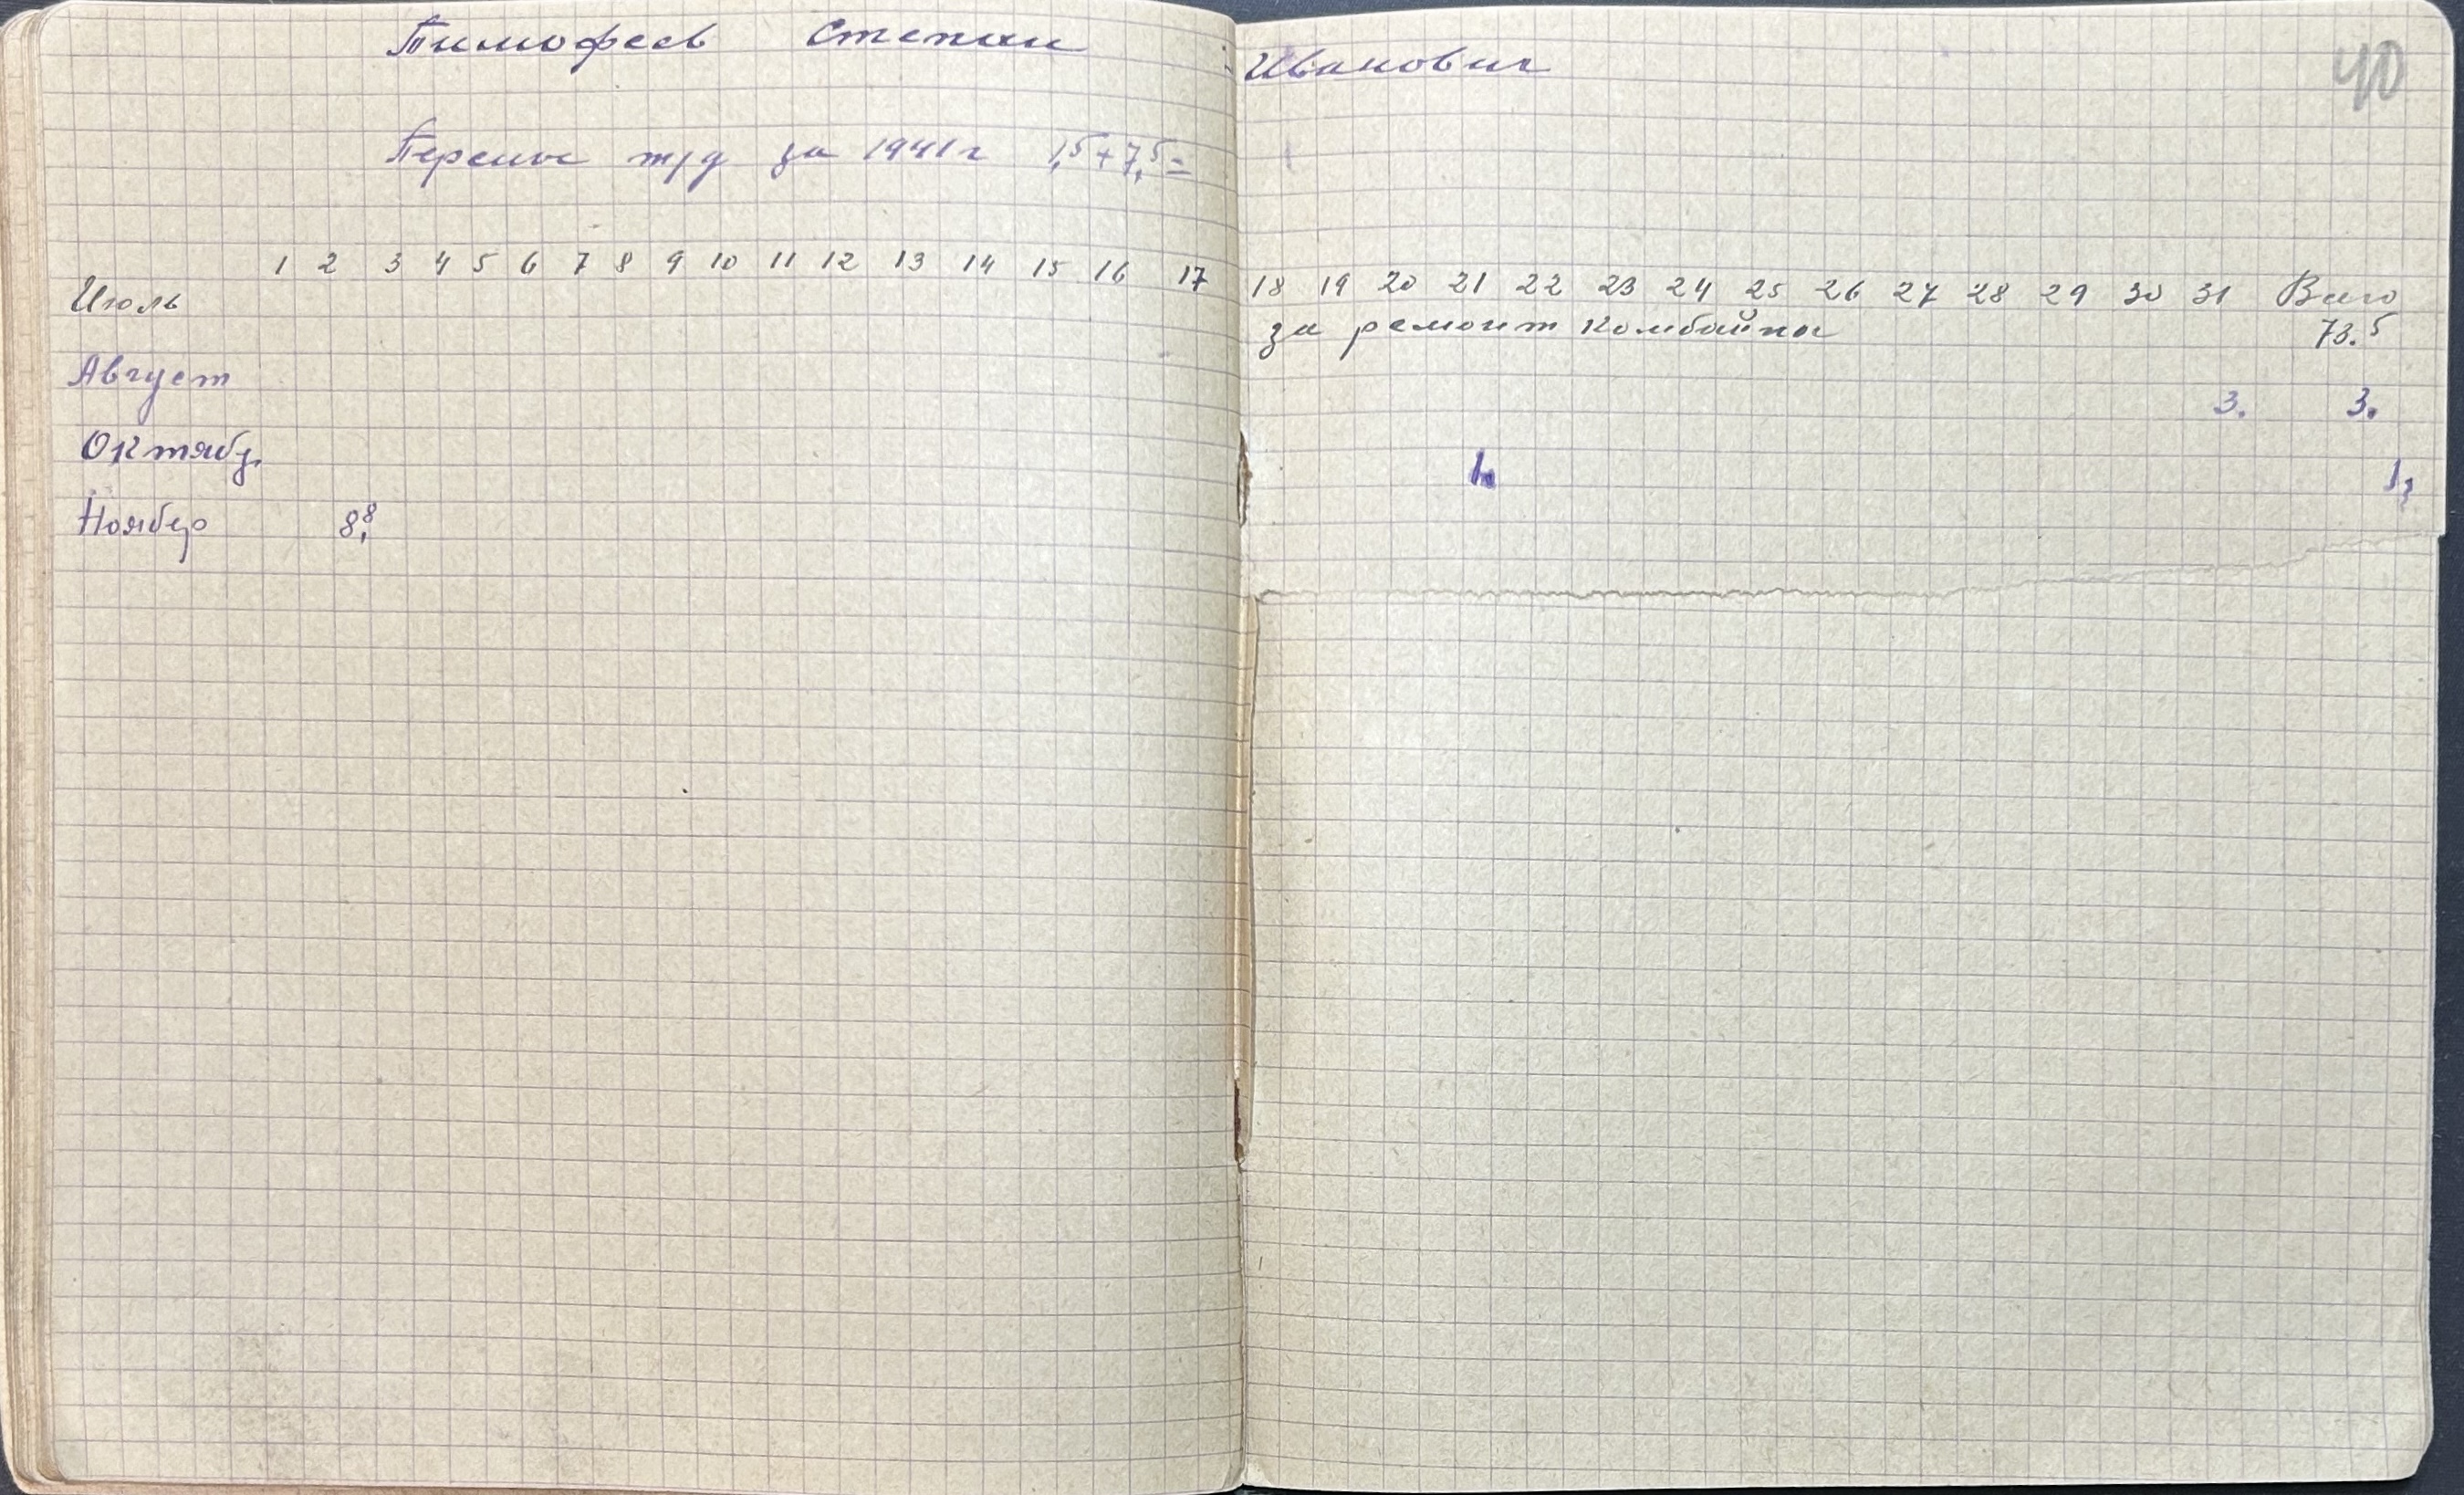 Тимофеев Степан Иванович
40
Перенос т/д за 1941 г 1,5+7,5=
1 2 3 4 5 6 7 8 9 10 11 12 13 14 15 16 17 18 19 20 21 22 23 24 25 26 27 28 29 30 31 Всего
Июль за ремонт комбайна 73.5
Август 3. 3.
Октябр. 1, 1,
Ноябр 8,8